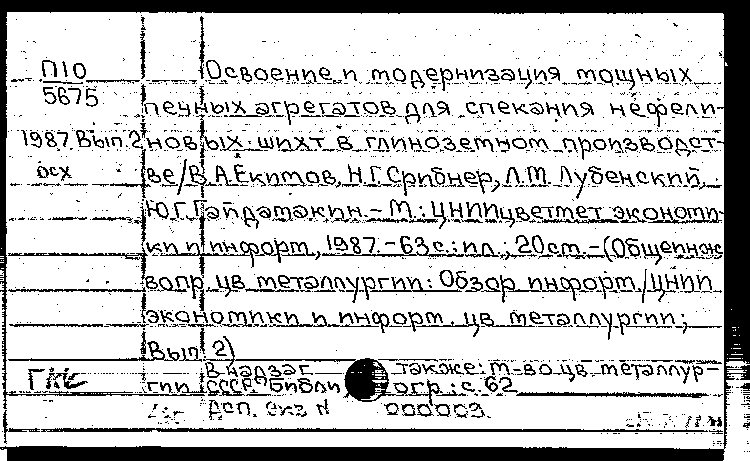 П10 Освоение и модернизация мощных
5675 печных агрегатов для спекания нефели-
1987 Вып.2 новых шихт в глиноземном производст-
осх ве/В.А.Екимов, Н.Г.Срибнер, Л.М.Лубенский,
Ю.Г.Гайдамакин.-М.: ЦНИИцветмет экономи-
ки и информ., 1987.-63с.: ил.; 20см.-(Общеинж.
вопр. цв. металлургии: Обзор. информ./ЦНИИ
экономики и информ. цв. металлургии;
Вып. 2)
В надзаг. также: М-во цв. металлур-
гии СССР. Библиогр.: с.62
Дсп. экз N 000003